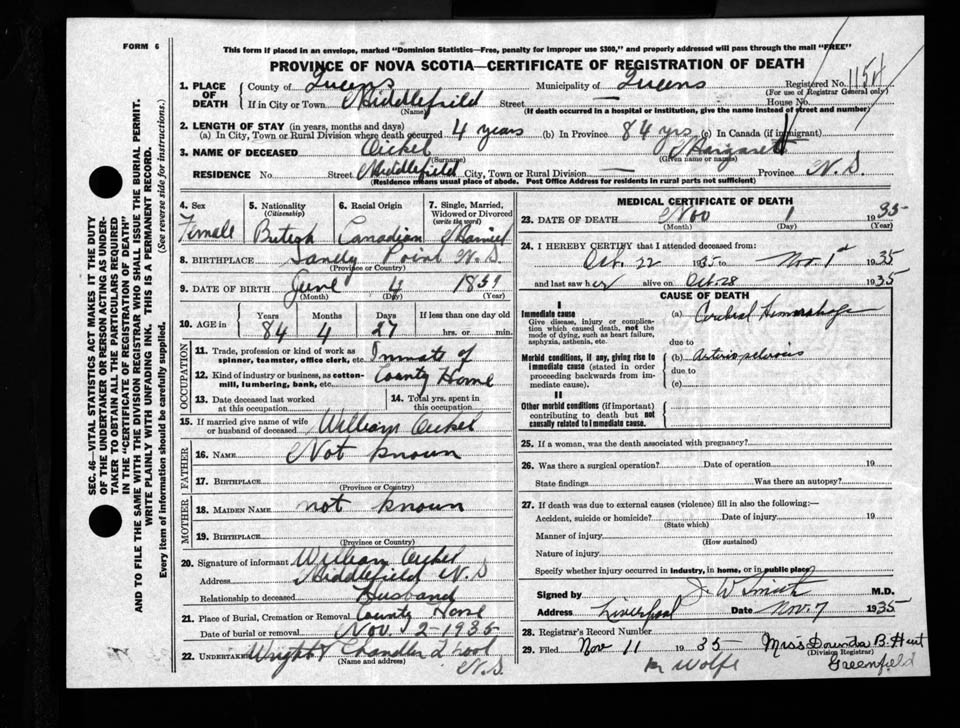 FORM 6
This form if placed in an envelope, marked "Dominion Statistics—Free, penalty for improper use $300," and properly addressed will pass through the mail "FREE"
PROVINCE OF NOVA SCOTIA—CERTIFICATE OF REGISTRATION OF DEATH
1. PLACE OF DEATH
County of Queens Municipality of Queens Registered No. 1154
(For use of Registrar General only)
If in City or Town Middlefield Street — House No.
(Name) (If death occurred in a hospital or institution, give the name instead of street and number)
2. LENGTH OF STAY (in years, months and days)
(a) In City, Town or Rural Division where death occurred 4 years (b) In Province 84 yrs (c) In Canada (if immigrant)
3. NAME OF DECEASED Oickel Margaret
(Surname) (Given name or names)
RESIDENCE No. Street Middlefield City, Town or Rural Division — Province N.S.
(Residence means usual place of abode. Post Office Address for residents in rural parts not sufficient)
4. Sex Female
5. Nationality (Citizenship) British
6. Racial Origin Canadian
7. Single, Married, Widowed or Divorced (write the word) Married
8. BIRTHPLACE Sandy Point N.S.
(Province or Country)
9. DATE OF BIRTH June 4 1851
(Month) (Day) (Year)
10. AGE in Years Months Days If less than one day old
84 4 27 hrs. or min.
OCCUPATION
11. Trade, profession or kind of work as spinner, teamster, office clerk, etc. Inmate of
12. Kind of industry or business, as cotton-mill, lumbering, bank, etc. County Home
13. Date deceased last worked at this occupation
14. Total yrs. spent in this occupation
15. If married give name of wife or husband of deceased William Oickel
FATHER
16. NAME Not known
17. BIRTHPLACE
(Province or Country)
MOTHER
18. MAIDEN NAME not known
19. BIRTHPLACE
(Province or Country)
20. Signature of informant William Oickel
Address Middlefield N.S
Relationship to deceased Husband
21. Place of Burial, Cremation or Removal County Home
Date of burial or removal Nov. 2 1935
22. UNDERTAKER Wright & Chandler L'pool
(Name and address) N.S.
MEDICAL CERTIFICATE OF DEATH
23. DATE OF DEATH Nov 1 1935
(Month) (Day) (Year)
24. I HEREBY CERTIFY that I attended deceased from:
Oct. 22 1935 to Nov. 1st 1935
and last saw her alive on Oct. 28 1935
CAUSE OF DEATH
I
Immediate cause
Give disease, injury or complication which caused death, not the mode of dying, such as heart failure, asphyxia, asthenia, etc.
(a) Cerebral Hemorrhage
due to
Morbid conditions, if any, giving rise to immediate cause (stated in order proceeding backwards from immediate cause).
(b) Arterio sclerosis
due to
(c)
II
Other morbid conditions (if important) contributing to death but not causally related to immediate cause.
25. If a woman, was the death associated with pregnancy?
26. Was there a surgical operation? Date of operation 19
State findings Was there an autopsy?
27. If death was due to external causes (violence) fill in also the following:
Accident, suicide or homicide? Date of injury 19
(State which)
Manner of injury
(How sustained)
Nature of injury
Specify whether injury occurred in industry, in home, or in public place
Signed by J. W Smith M.D.
Address Liverpool Date Nov. 7 1935
28. Registrar's Record Number
29. Filed Nov 11 1935 Miss B. Hunt
(Division Registrar)
Wolfe Greenfield
SEC. 46—VITAL STATISTICS ACT MAKES IT THE DUTY
OF THE UNDERTAKER OR PERSON ACTING AS UNDERTAKER
TO OBTAIN ALL THE PARTICULARS REQUIRED
IN THE "CERTIFICATE OF REGISTRATION OF DEATH"
AND TO FILE THE SAME WITH THE DIVISION REGISTRAR WHO SHALL ISSUE THE BURIAL PERMIT.
WRITE PLAINLY WITH UNFADING INK. THIS IS A PERMANENT RECORD.
Every item of information should be carefully supplied. (See reverse side for instructions.)